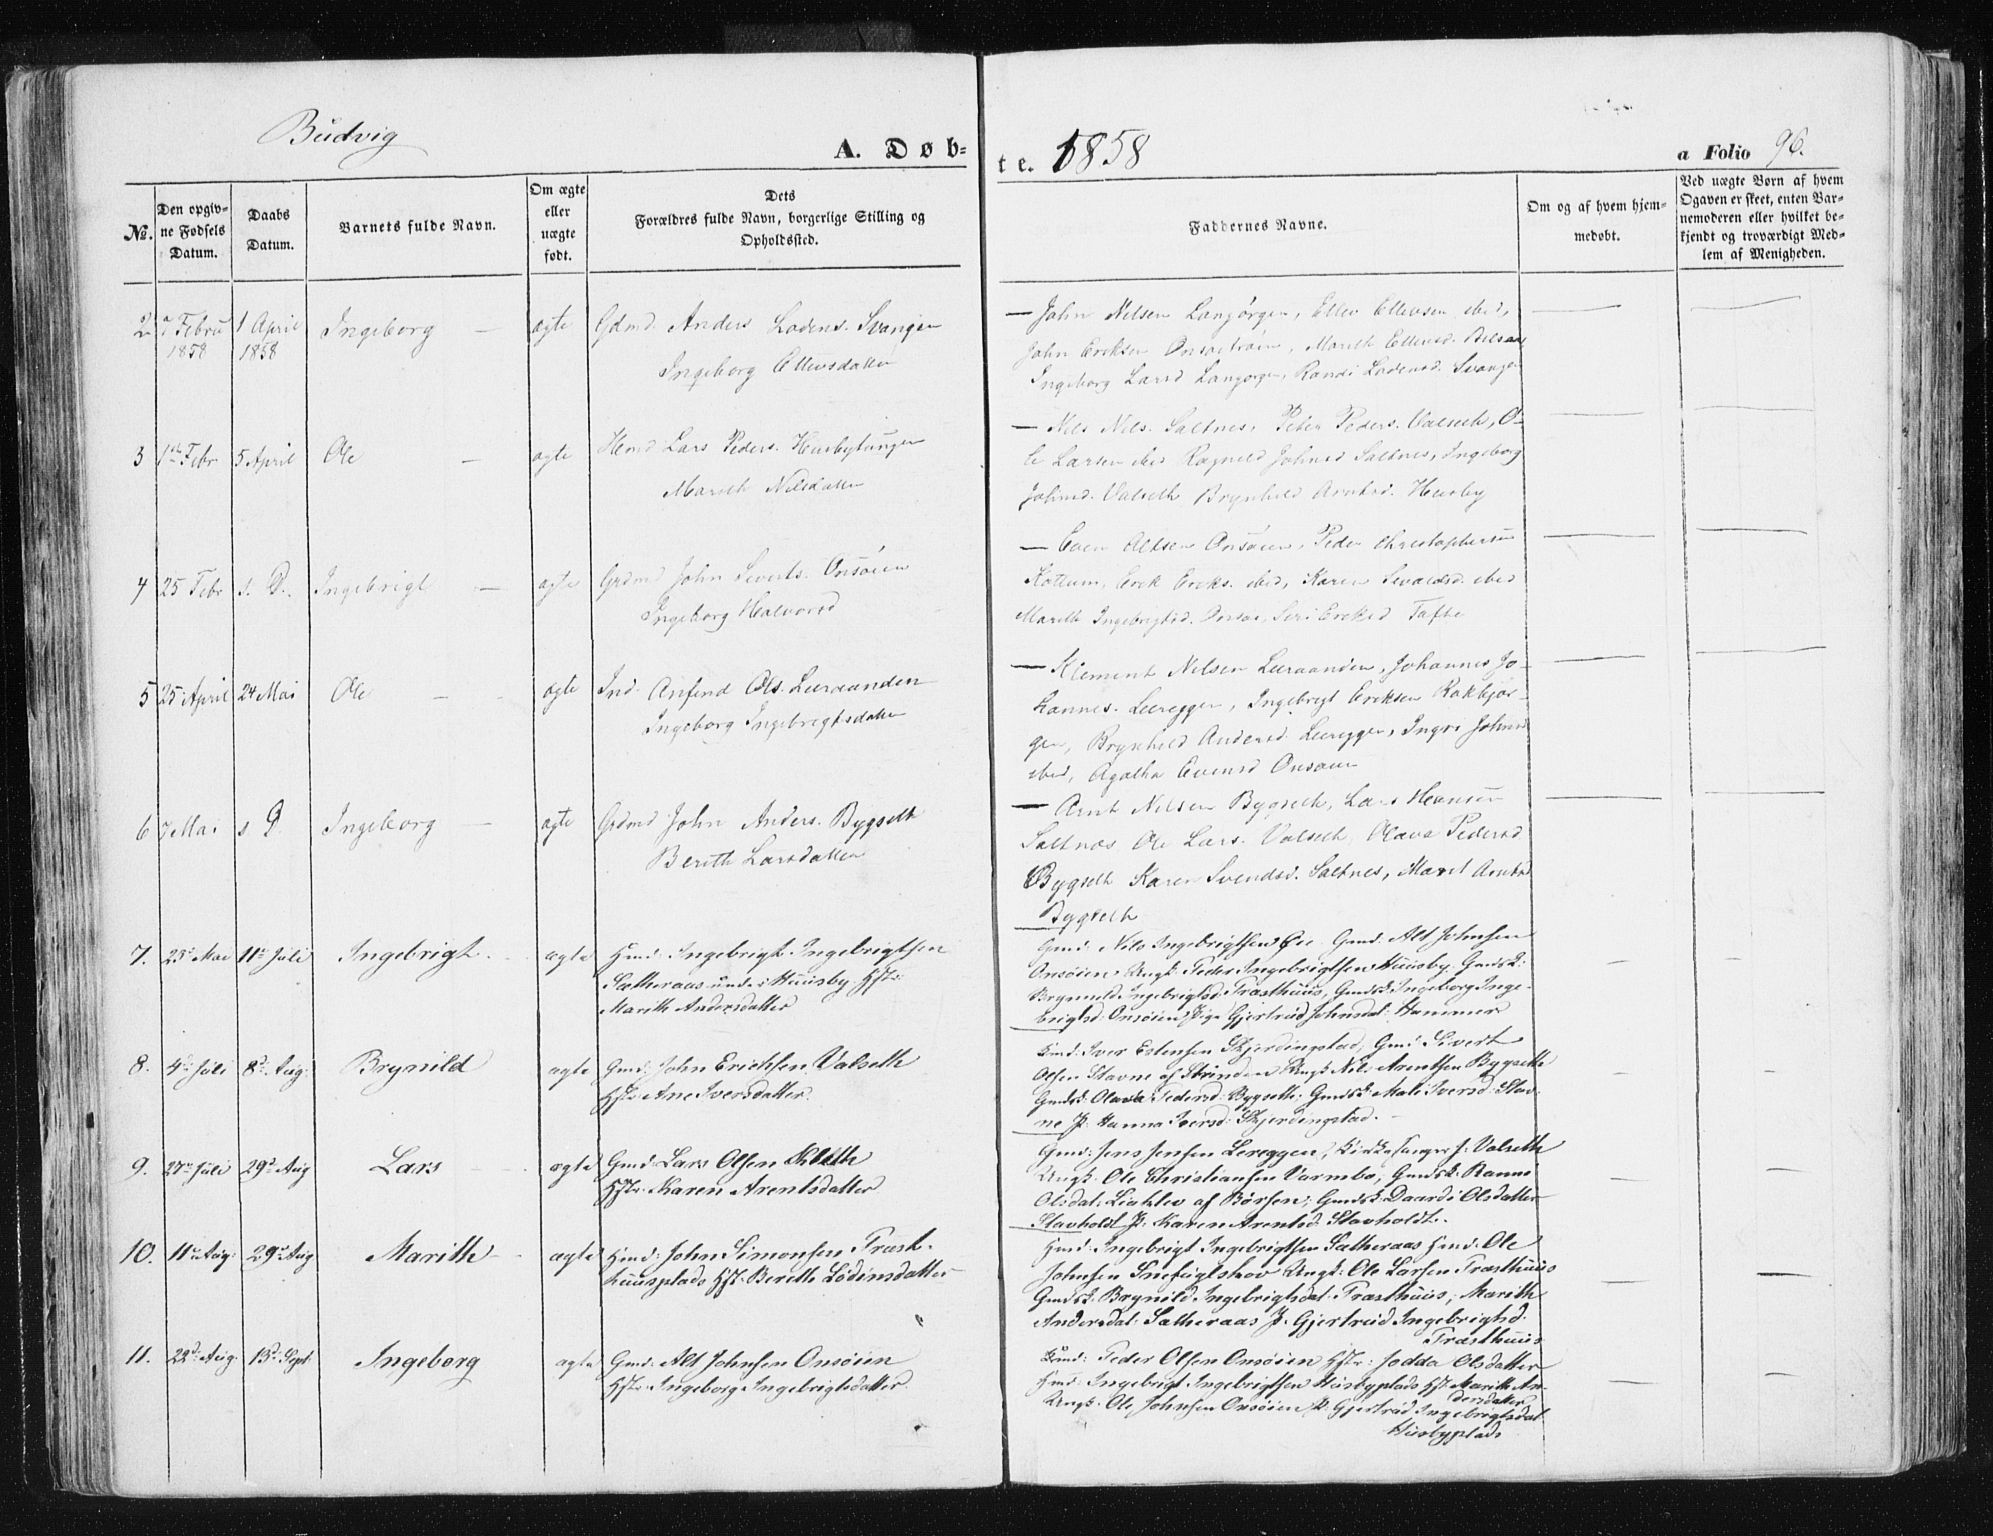 Budvig
A. Døb-
te. 1858
a Folio 96.
No.
Den opgiv-
ne Fødsels
Datum.
Daabs
Datum.
Barnets fulde Navn.
Om ægte
eller
uægte
født.
Dets
Forældres fulde Navn, borgerlige Stilling og
Opholdssted.
Faddernes Navne.
Om og af hvem hjem-
medøbt.
Ved uægte Børn af hvem
Opgaven er skeet, enten Bar-
nemoderen eller hvilket be-
kjendt og troværdigt Med-
lem af Menigheden.
2 7 Febru 1858
1 April 1858
Ingeborg
ægte
Gdmd. Anders Lodens. Svangen
Ingeborg Ellevsdatter
John Nilsen Langørgen, Ellev Ellevsen ibid,
John Eriksen Onsøetrøen, Marith Ellevsd.
Ingeborg Larsd Langørgen, Randi Lodensd. Svangen
3 1ste Febr
5 April
Ole
ægte
Hmd Lars Peders. Husbytungen
Marith Nilsdatter
Nils Nils. Saltnes, Peder Peders. Valseth, O-
le Larsen ibid Ragnild Johnsd Saltnes, Ingeborg
Johnsd. Valseth Brynhild Arntsd. Husby
4 25 Febr
s. D.
Ingebrigt
ægte
Grdmd John Siverts. Onsøien
Ingeborg Halvorsd
Even Altsen Onsøien, Peder Christophersen
Kottum, Erik Eriks. ibid, Karen Sivaldsd. ibid
Marith Ingebrigtsd. Onsøe, Siri Eriksd Tafte
5 25 April
24 Mai
Ole
ægte
Ind. Anfind Ols. Leeraanden
Ingeborg Ingebrigtsdatter
Klement Nilsen Leeraanden, Johannes Jo-
hannes. Leereggen, Ingebrigt Eriksen Rokbjør-
gen, Brynhild Andersd. Leereggen, Ingri Johnsd
ibid, Agatha Evensd Onsøien
6 7 Mai
s. D.
Ingeborg
ægte
Grdmd John Anders. Bygseth
Berith Larsdatter
Arnt Nilsen Bygseth, Lars Hansen
Saltnes Ole Lars. Valseth, Olava Pedersd
Bygseth Karen Svendsd. Saltnes, Marit Arntsd
Bygseth
7. 23de Mai
11te Juli
Ingebrigt
ægte
Hmd: Ingebrigt Ingebrigtsen
Sætheraas under Huusby Hst:
Marith Andersdatter
Gmd: Nils Ingebrigtsen Øie Gmd: Alt Johnsen
Onsøien, Ungk: Peder Ingebrigtsen Huusby: Gmdsk:
Brynnild Ingebrigtsd: Træsthuus, Gmdsk: Ingeborg Inge-
brigtsd: Onsøien, Pige Gjertrud Johnsdat: Hammer
8. 4de Juli
8de Aug:
Brynild
ægte
Gmd: John Erichsen Valseth
Hst: Ane Iversdatter
Gmd: Iver Estensen Skjerdingstad, Gmd Sivert
Olsen Stavne af Strinden Ungk Nils Arentsen Bygseth
Gmdsk: Olava Pedersd: Bygseth: Gmdsk Mali Iversd: Stav-
ne P: Hanna Iversd: Skjerdingstad.
9. 27de Juli
29de Aug
Lars
ægte
Gmd: Lars Olsen
Hst: Karen Arentsdatter
Gmd: Jens Jensen Lereggen, Kirkesanger J: Valseth
Ungk: Ole Christiansen Varmbo, Gmdsk: Ranne
Olsdat: af Børsen, Gmdsk: Daardi Olsdatter
Stavholdt P: Karen Arentsd: Stavholdt.
10. 11te Aug:
29de Aug
Marith
ægte
Hmd: John Simonsen Træst-
huusplads Hst: Berith Lødinsdatter
Hmd: Ingebrigt Ingebrigtsen Sætheraas Hmd: Ole
Johnsen Snefuglskov Ungk: Ole Larsen Træsthuus
Gmdsk: Brynild Ingebrigtsdat: Træsthuus, Marith
Andersdat: Sætheraas P: Gjertrud Ingebrigtsd:
Træsthuus
11. 22de Aug:
13de Sept:
Ingeborg
ægte
Gmd: Alt Johnsen Onsøien
Hst: Ingeborg Ingebrigtsdatter
Gmd: Peder Olsen Onsøien Hst: Jodda Olsdatter
Hmd: Ingebrigt Ingebrigtsen Husbyplads Hst Marith An-
dersdatter
Ungk: Ole Johnsen Onsøien P: Gjertrud Ingebrigtsdat
Husbyplads